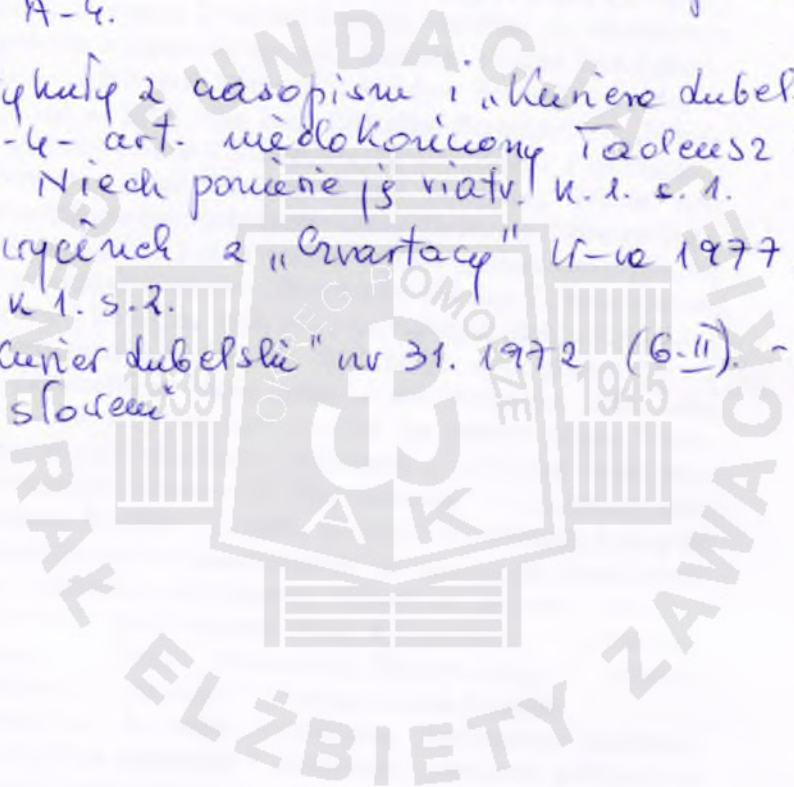 A-4.
ykuły z czasopism i „Kuriera Lubels
-4- art. niedokończony Tadeusz
Niech poniesie ją wiatr. k. 1. s. 1.
wycinek z „Czwartacy" W-wa 1977
k 1. s. 2.
Kurier Lubelski" nr 31. 1972 (6.II). -
słowem"
FUNDACJA
GENERAŁ ELŻBIETY ZAWACKIEJ
OKRĘG POMORZE
1939 1945
AK